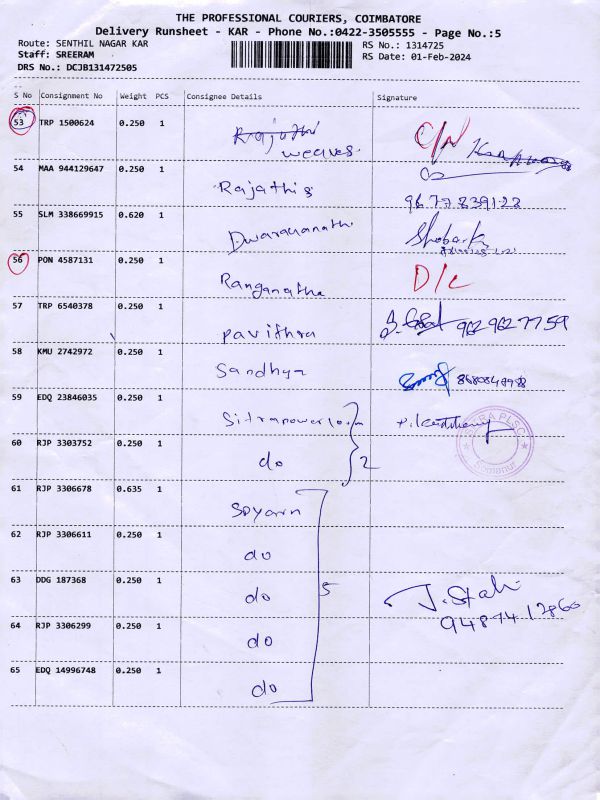 THE PROFESSIONAL COURIERS, COIMBATORE
Delivery Runsheet - KAR - Phone No.:0422-3505555 - Page No.:5
Route: SENTHIL NAGAR KAR RS No.: 1314725
Staff: SREERAM RS Date: 01-Feb-2024
DRS No.: DCJB131472505
S No Consignment No Weight PCS Consignee Details Signature
53 TRP 1500624 0.250 1 weaves C/N
54 MAA 944129647 0.250 1 Rajathis 9677839122
55 SLM 338669915 0.620 1 Dwarakanath
56 PON 4587131 0.250 1 Ranganatha D/L
57 TRP 6540378 0.250 1 pavithra 9629627759
58 KMU 2742972 0.250 1 Sandhya
59 EDQ 23846035 0.250 1 Sitrapowerloom
60 RJP 3303752 0.250 1 do 2
61 RJP 3306678 0.635 1 Soyarn
62 RJP 3306611 0.250 1 do
63 DDG 187368 0.250 1 do 5
64 RJP 3306299 0.250 1 do 9487412860
65 EDQ 14996748 0.250 1 do